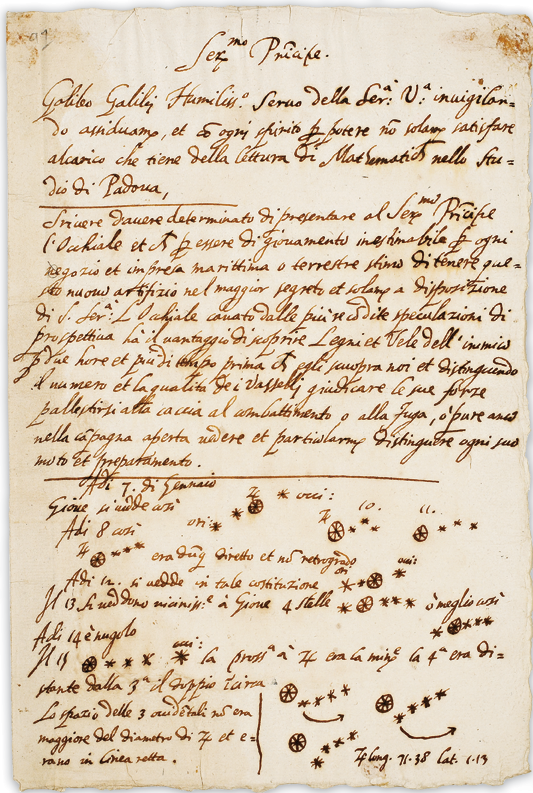 Ser.mo Principe.
Galileo Galilej Humiliss.o Servo della Ser.a V.a invigilan-
do assiduam.e, et cõ ogni spirito p potere nõ solam.e satisfare
alcarico che tiene della lettura di Mathematicħ nello Stu-
dio di Padova,
Scrivere davere determinato di presentare al Ser.mo Pricipe
l'Occhiale et cħ p essere di giovamento inestimabile p ogni
negozio et impresa marittima o terrestre stimo di tenere que-
sto nuovo artifizio nel maggior segreto et solam.e a disposizione
di S. Ser.a L'Occhiale cavato dalle più recõdite speculazioni di
prospettiva hà il vantaggio di scoprire Legni et Vele dell'inimico
p due hore et più di tempo prima cħ egli scuopra noi et distinguendo
il numero et la qualità de i Vasselli giudicare le sue forze
pallestirsi alla caccia al combattimento o alla fuga, ò pure anco
nella cãpagna aperta vedere et particolarm.e distinguere ogni suo
moto et preparamento.
Adi 7. di Gennaio
Giove si vedde così ♃ occi:
Adi 8 così ori: ♃ 10. 11.
♃ era dũq diretto et nõ retrogrado
Adi 12. si vedde in tale costituzione ori occi:
Il 13 si veddono vicinis.e à Giove 4 stelle ò meglio così
Adi 14 è nugolo
Il 15 occi: la pross.a à ♃ era la min.e la 4.a era di-
stante dalla 3.a il doppio ĩcirca
Lo spazio delle 3 occidẽtali nõ era
maggiore del diametro di ♃ et e-
rano in linea retta.
♃ long. 71.38 lat. 1.13